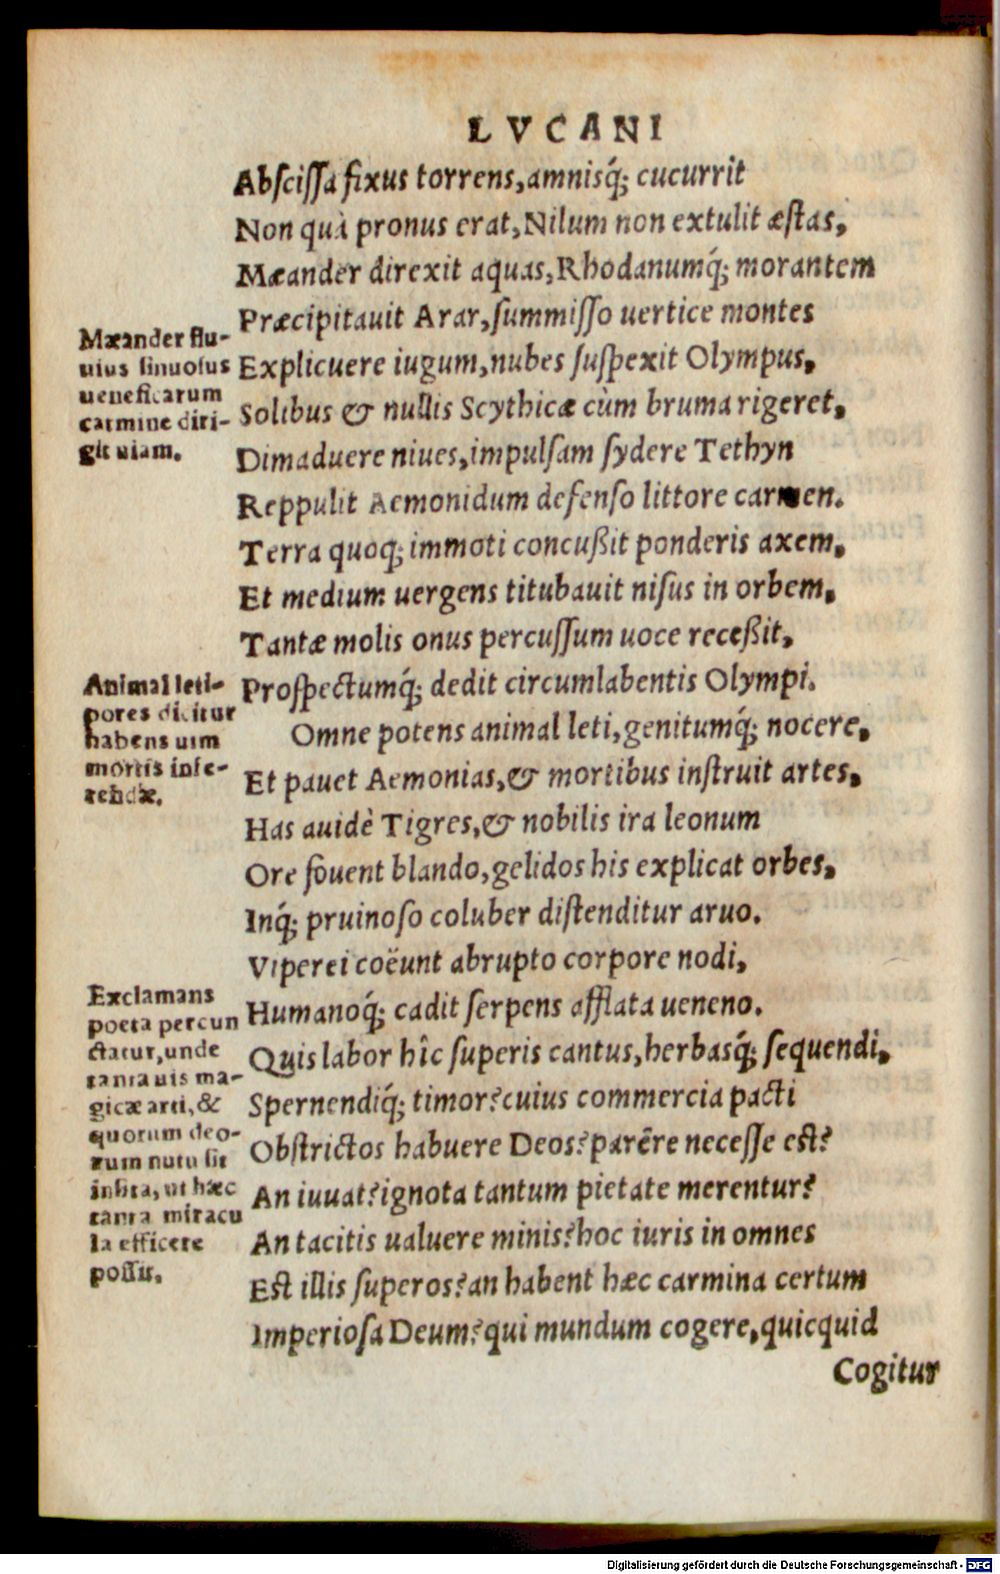 LVCANI
Abscissa fixus torrens, amnisq́; cucurrit
Non quà pronus erat, Nilum non extulit æstas,
Mæander direxit aquas, Rhodanumq́; morantem
Præcipitauit Arar, summisso uertice montes
Explicuere iugum, nubes suspexit Olympus,
Solibus & nullis Scythicæ cùm bruma rigeret,
Dimaduere niues, impulsam sydere Tethyn
Reppulit Aemonidum defenso littore carmen.
Terra quoq; immoti concußit ponderis axem,
Et medium uergens titubauit nisus in orbem,
Tantæ molis onus percussum uoce receßit,
Prospectumq́; dedit circumlabentis Olympi.
Omne potens animal leti, genitumq́; nocere,
Et pauet Aemonias, & mortibus instruit artes,
Has auidè Tigres, & nobilis ira leonum
Ore fouent blando, gelidos his explicat orbes,
Inq́; pruinoso coluber distenditur aruo.
Viperei coëunt abrupto corpore nodi,
Humanoq́; cadit serpens afflata ueneno.
Quis labor hîc superis cantus, herbasq́; sequendi,
Spernendiq́; timor? cuius commercia pacti
Obstrictos habuere Deos? parêre necesse est?
An iuuat? ignota tantum pietate merentur?
An tacitis ualuere minis? hoc iuris in omnes
Est illis superos? an habent hæc carmina certum
Imperiosa Deum? qui mundum cogere, quicquid
Cogitur
Mæander flu-
uius sinuosus
ueneficarum
carmine diri-
git uiam.
Animal leti-
pores dicitur
habens uim
mortis infe-
rendæ.
Exclamans
poeta percun
ctatur, unde
tanta uis ma-
gicæ arti, &
quorum deo-
rum nutu sit
insita, ut hæc
tanta miracu
la efficere
possit.
Digitalisierung gefördert durch die Deutsche Forschungsgemeinschaft - DFG